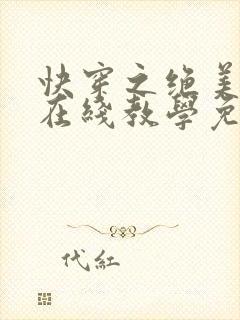 快穿之绝美
在线教學免
代紅